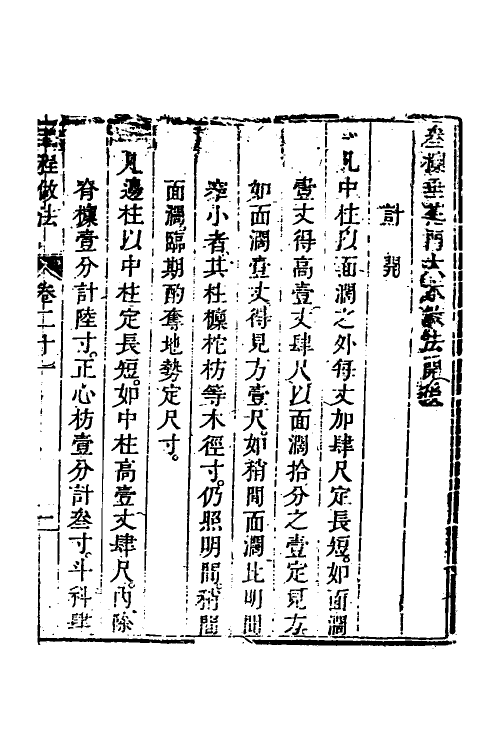 叁檁垂花門大木做法開後
計開
一凡中柱以面濶之外每丈加肆尺定長短。如面濶
壹丈得高壹丈肆尺。以面濶拾分之壹定見方。
如面濶壹丈得見方壹尺。如稍間面濶比明間
窄小者。其柱檁柁枋等木徑寸。仍照明間。稍間
面濶臨期酌奪地勢定尺寸。
凡邊柱以中柱定長短。如中柱高壹丈肆尺。內除
脊檁壹分計陸寸。正心枋壹分計叁寸。斗科肆
工程做法 卷二十一 一